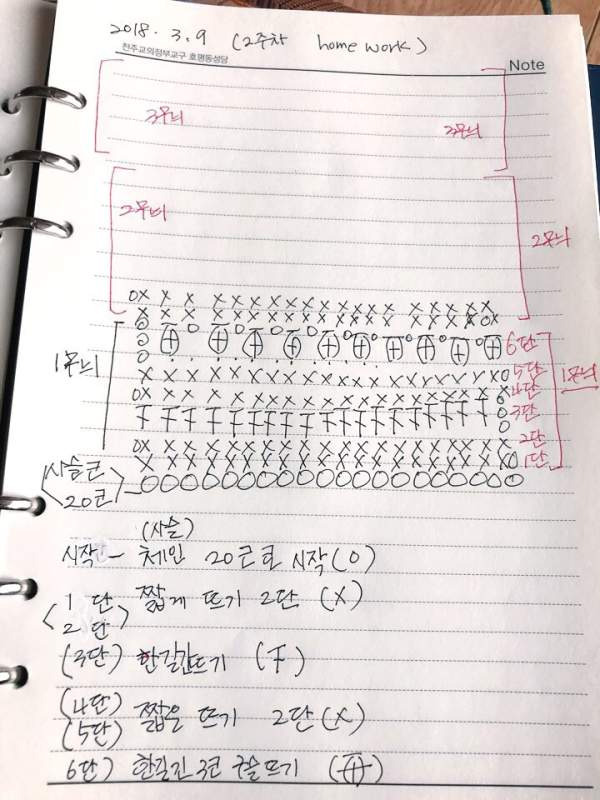 2018. 3. 9 (2주차 home work)
천주교의정부교구 호평동성당
Note
3무늬 3무늬
2무늬 2무늬
1무늬 1무늬
6단
5단
4단
3단
2단
1단
사슬코
20코
(사슬)
시작 - 체인 20코로 시작(O)
1단
2단 짧게 뜨기 2단 (X)
(3단) 한길긴뜨기 (Ŧ)
(4단)
(5단) 짧은 뜨기 2단(X)
6단) 한길긴 3코 구슬뜨기